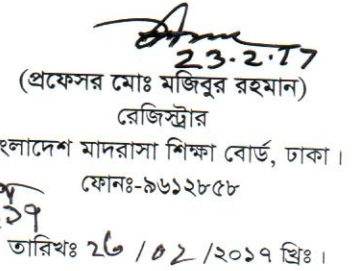 23.2.17
(প্রফেসর মোঃ মজিবুর রহমান)
রেজিস্ট্রার
মাদরাসা শিক্ষা বোর্ড, ঢাকা।
ফোনঃ-৯৬১২৮৫৮
তারিখঃ 26/02/২০১৭ খ্রিঃ।